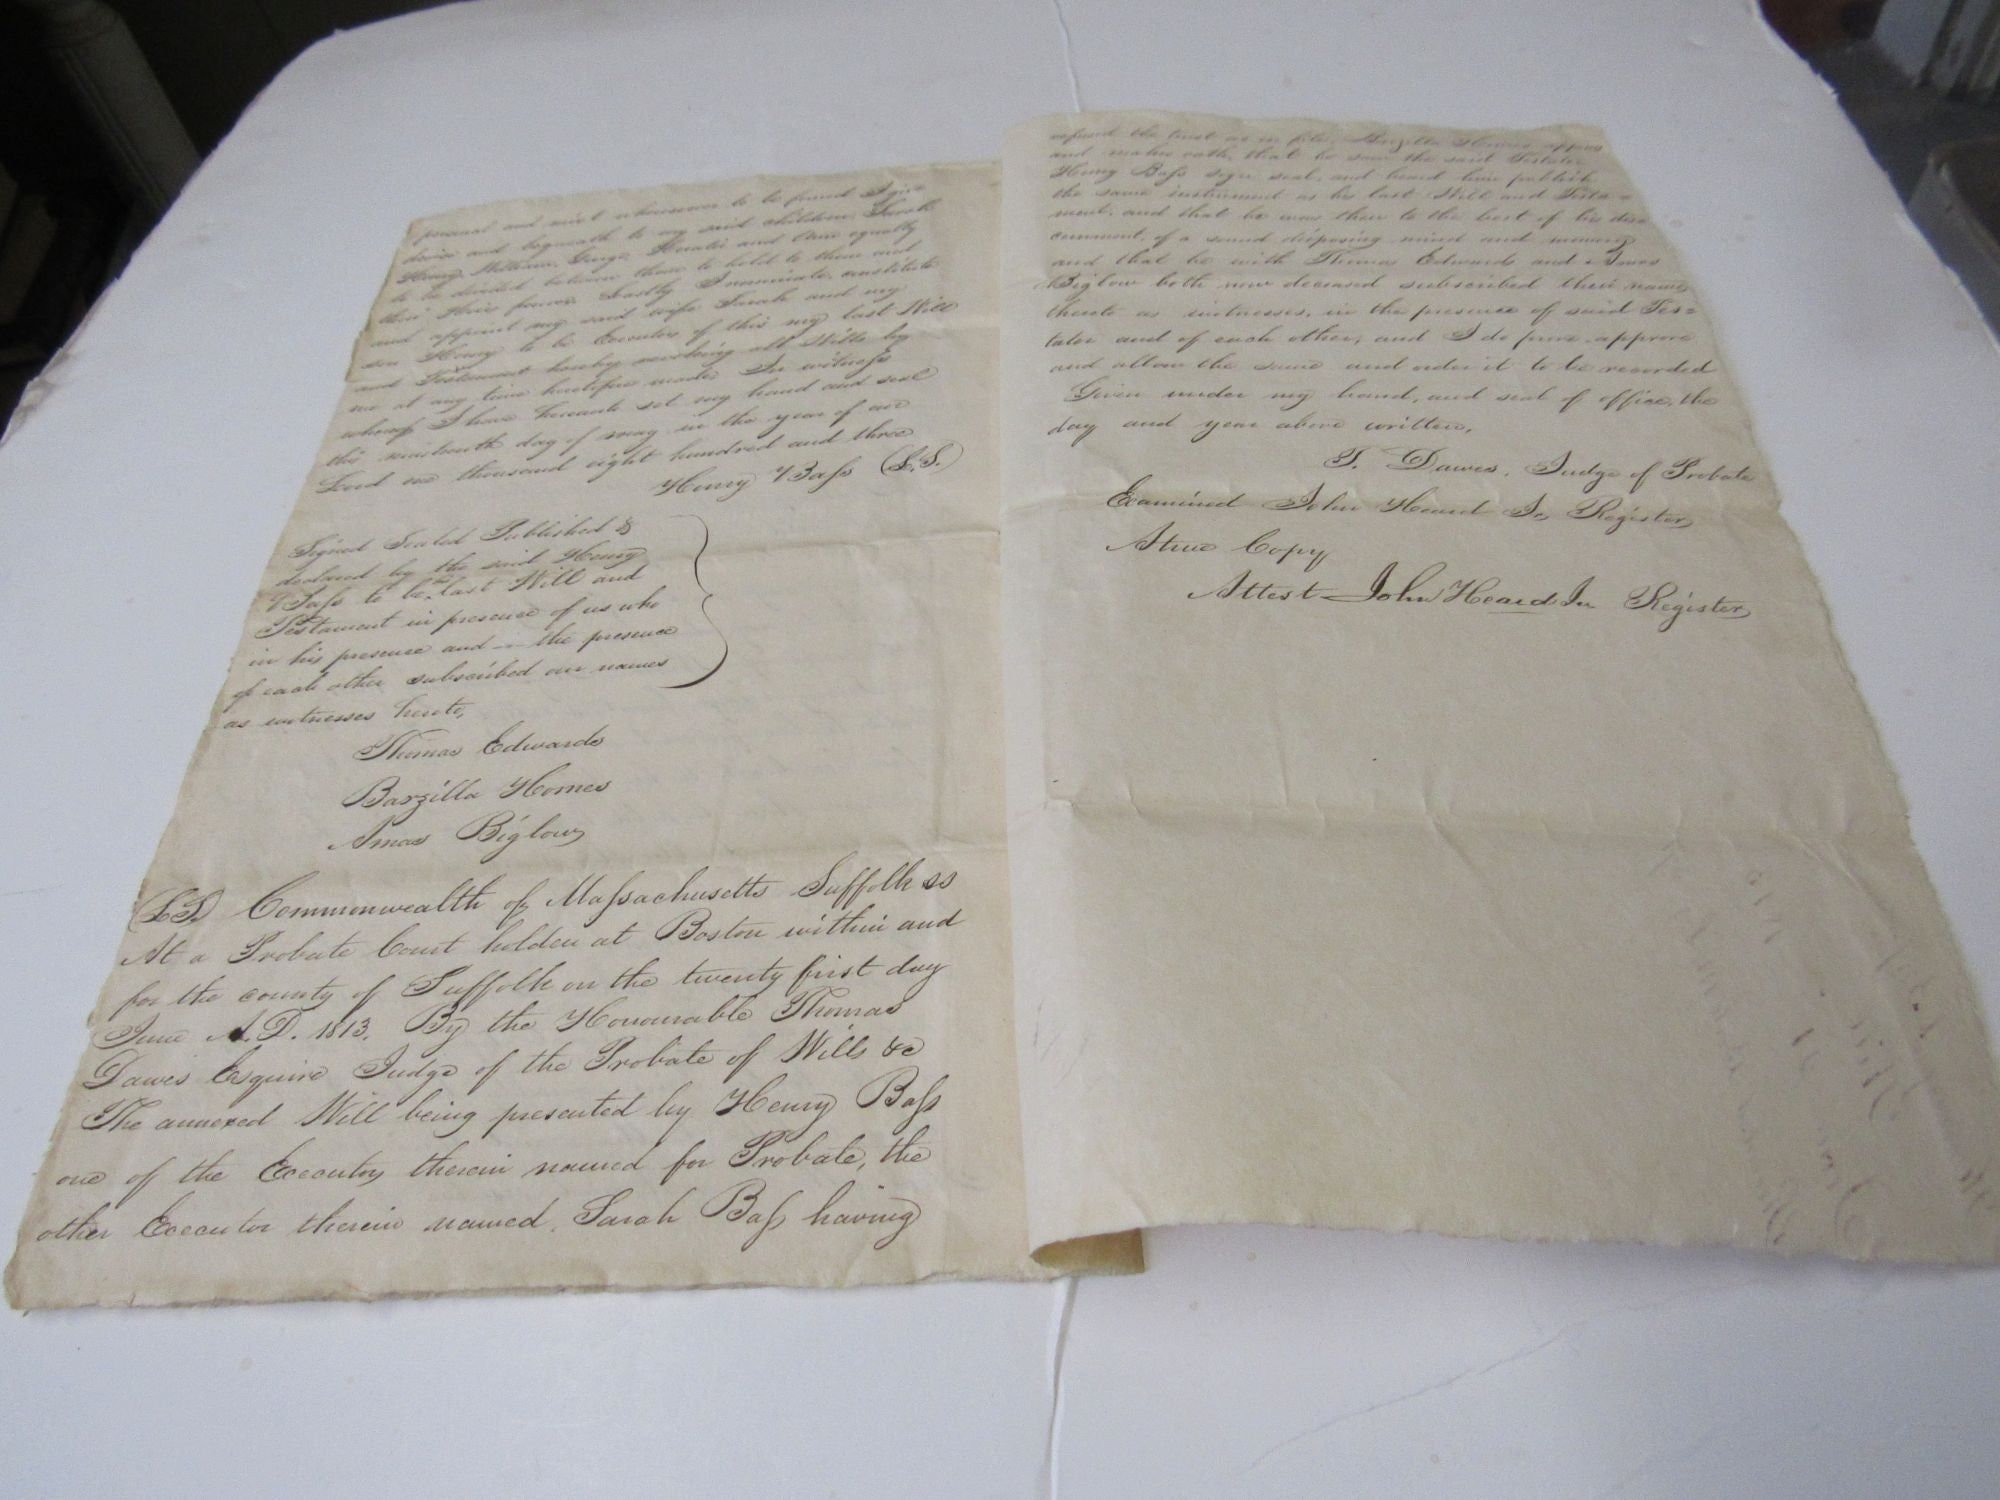 personal and mixt whensoever to be found I give
devise and bequeath to my said children Sarah
Henry William George Horatio and Ann equally
to be divided between them to hold to them and
their Heirs forever Lastly I nominate constitute
and appoint my said wife Sarah and my
son Henry to be Executors of this my last Will
and Testament hereby revoking all Wills by
me at any time heretofore made In witness
whereof I have hereunto set my hand and seal
this nineteenth day of may in the year of our
Lord one thousand eight hundred and three
Henry Bass (L.S.)
Signed Sealed Published &
declared by the said Henry
Bass to be his last Will and
Testament in presence of us who
in his presence and in the presence
of each other subscribed our names
as witnesses hereto,
Thomas Edwards
Barzilla Homes
Amos Biglow
(LS) Commonwealth of Massachusetts Suffolk ss
At a Probate Court holden at Boston within and
for the county of Suffolk on the twenty first day
June A.D. 1813. By the Honourable Thomas
Dawes Esquire Judge of the Probate of Wills &c
The annexed Will being presented by Henry Bass
one of the Executors therein named for Probate, the
other Executor therein named, Sarah Bass having
refused the trust as on file, Barzilla Homes appears
and makes oath, that he saw the said Testator
Henry Bass sign seal, and heard him publish
the same instrument as his last Will and Testa=
ment, and that he was then to the best of his dis=
cernment, of a sound disposing mind and memory
and that he with Thomas Edwards and Amos
Biglow both now deceased subscribed their names
thereto as witnesses, in the presence of said Tes=
tator and of each other, and I do prove, approve
and allow the same and order it to be recorded
Given under my hand, and seal of office, the
day and year above written,
T. Dawes, Judge of Probate
Examined John Heard Jr, Register
A true Copy
Attest John Heard Jr Register